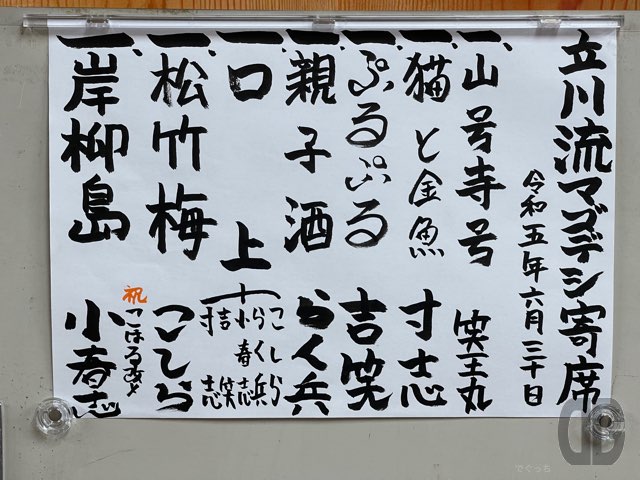 立川流マゴデシ寄席
令和五年六月三十日
一、山号寺号 笑王丸
一、猫と金魚 寸志
一、ぷるぷる 吉笑
一、親子酒 らく兵
一、口上
こしら
らく兵
小春志
吉笑
寸志
一、松竹梅 こしら
祝
一、岸柳島 小春志
でぐっち